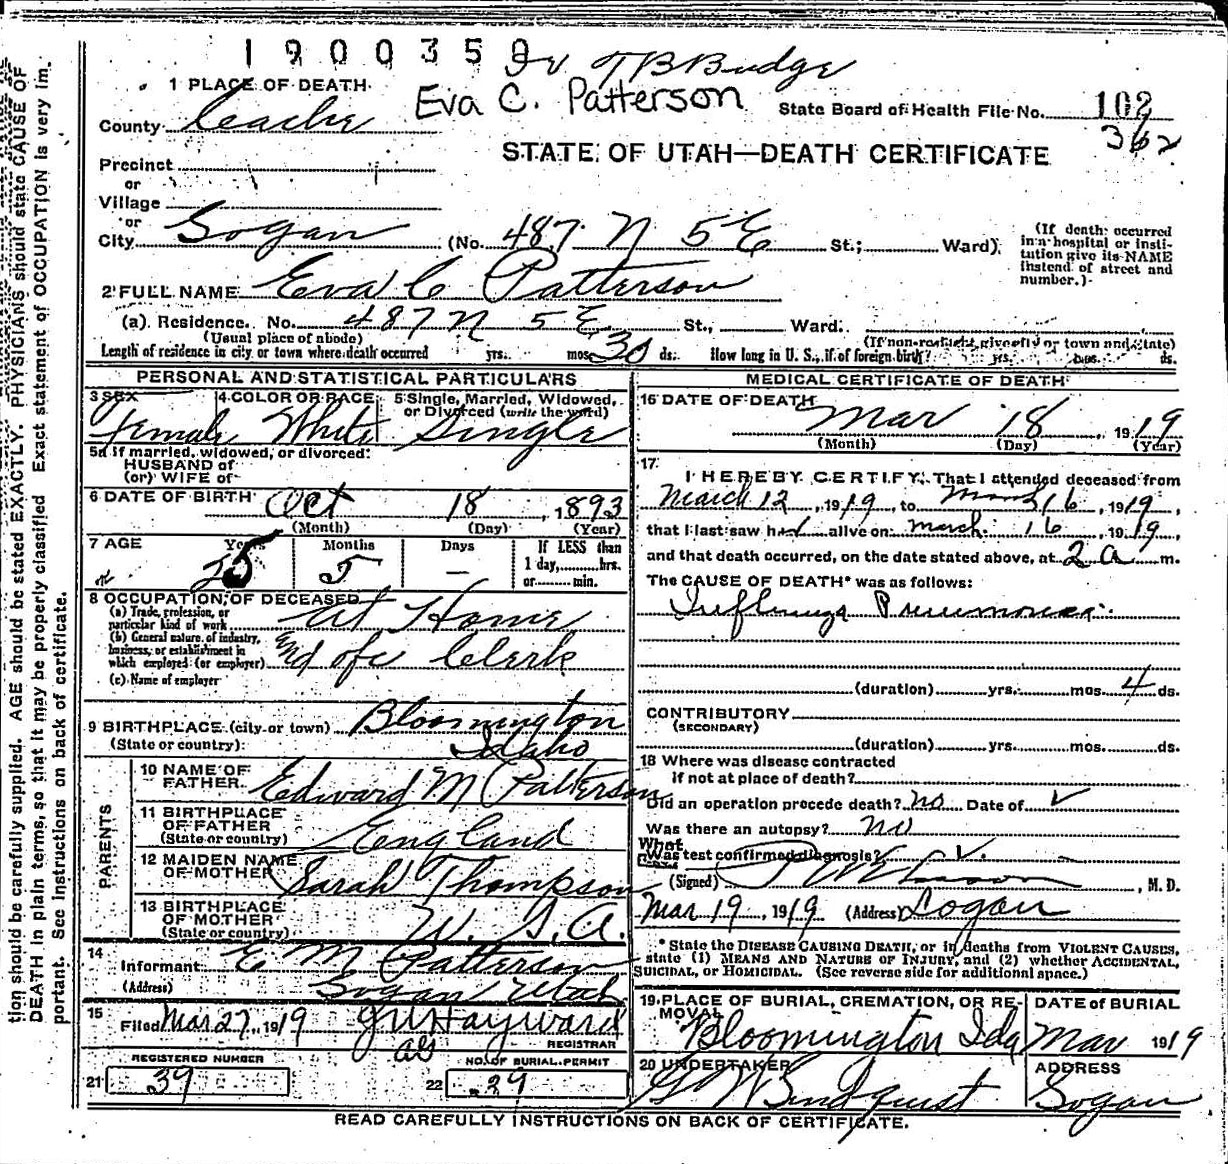 1900359 Dr T B Budge
1 PLACE OF DEATH
Eva C. Patterson
State Board of Health File No. 102
362
County Cache
STATE OF UTAH—DEATH CERTIFICATE
Precinct
or
Village
or
City Logan (No. 487 N 5 E St.; Ward)
(If death occurred in a hospital or institution give its NAME instead of street and number.)
2 FULL NAME Eva C Patterson
(a). Residence. No. 487 N 5 E St., Ward.
(Usual place of abode) (If non-resident give city or town and state)
Length of residence in city or town where death occurred yrs. mos. 30 ds. How long in U. S., if of foreign birth? yrs. mos. ds.
PERSONAL AND STATISTICAL PARTICULARS
3 SEX 4 COLOR OR RACE 5 Single, Married, Widowed, or Divorced (write the word)
Female White Single
5a If married, widowed, or divorced:
HUSBAND of
(or) WIFE of
6 DATE OF BIRTH Oct 18, 1893
(Month) (Day) (Year)
7 AGE Years Months Days If LESS than
1 day, hrs.
or min.
25 5 —
8 OCCUPATION OF DECEASED
(a) Trade, profession, or particular kind of work At Home
(b) General nature of industry, business, or establishment in which employed (or employer) Clerk
(c) Name of employer
9 BIRTHPLACE (city or town) Bloomington
(State or country) Idaho
PARENTS
10 NAME OF FATHER Edward M Patterson
11 BIRTHPLACE OF FATHER (State or country) England
12 MAIDEN NAME OF MOTHER Sarah Thompson
13 BIRTHPLACE OF MOTHER (State or country)
14 Informant E M Patterson
(Address) Logan Utah
15 Filed Mar 27, 1919 Hayward
REGISTRAR
REGISTERED NUMBER NO. OF BURIAL PERMIT
21 39 22 29
MEDICAL CERTIFICATE OF DEATH
16 DATE OF DEATH Mar 18, 1919
(Month) (Day) (Year)
17 I HEREBY CERTIFY, That I attended deceased from
March 12, 1919, to 16, 1919,
that I last saw her alive on march 16, 1919,
and that death occurred, on the date stated above, at 2 a m.
The CAUSE OF DEATH* was as follows:
Influenza Pneumonia
(duration) yrs. mos. 4 ds.
CONTRIBUTORY
(SECONDARY)
(duration) yrs. mos. ds.
18 Where was disease contracted
if not at place of death?
Did an operation precede death? no Date of
Was there an autopsy? no
What test confirmed diagnosis?
(Signed) , M. D.
Mar 19, 1919 (Address) Logan
* State the DISEASE CAUSING DEATH, or in deaths from VIOLENT CAUSES,
state (1) MEANS AND NATURE OF INJURY, and (2) whether ACCIDENTAL,
SUICIDAL, or HOMICIDAL. (See reverse side for additional space.)
19 PLACE OF BURIAL, CREMATION, OR REMOVAL DATE of BURIAL
Bloomington Ida Mar 1919
20 UNDERTAKER ADDRESS
Lindquist Logan
READ CAREFULLY INSTRUCTIONS ON BACK OF CERTIFICATE.
tion should be carefully supplied. AGE should be stated EXACTLY. PHYSICIANS should state CAUSE OF
DEATH in plain terms, so that it may be properly classified Exact statement of OCCUPATION is very im-
portant. See instructions on back of certificate.